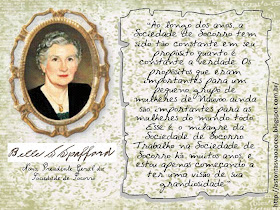 "Ao longo dos anos, a
Sociedade de Socorro tem
sido tão constante em seu
propósito quanto é
constante a verdade. Os
propósitos que eram
importantes para um
pequeno grupo de
mulheres de Nauvoo ainda
são importantes para as
mulheres do mundo todo.
Esse é o milagre da
Sociedade de Socorro.
Trabalho na Sociedade de
Socorro há muitos anos, e
estou apenas começando a
ter uma visão de sua
grandiosidade."
Belle S. Spafford
Presidente Geral da
Sociedade de Socorro